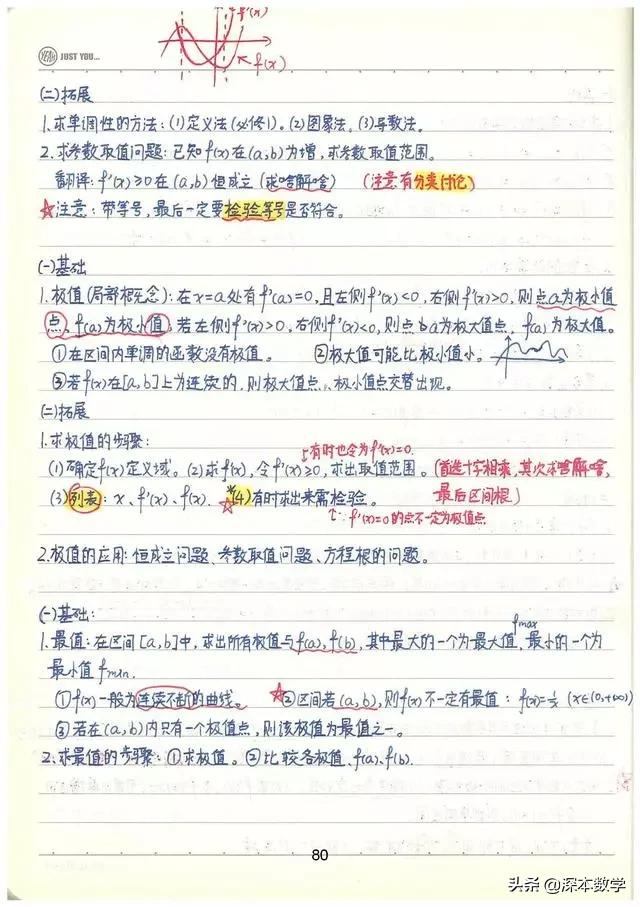 f'(x)
f(x)
YEAH JUST YOU...
(二)拓展
1.求单调性的方法:(1)定义法(必修1)。(2)图象法。(3)导数法。
2.求参数取值问题:已知f(x)在(a,b)为增,求参数取值范围。
翻译:f'(x)≥0在(a,b)恒成立(求啥解啥) (注意有分类讨论)
☆注意:带等号,最后一定要检验等号是否符合。
(一)基础
1.极值(局部概念):在x=a处有f'(a)=0,且左侧f'(x)<0,右侧f'(x)>0,则点a为极小值
点,f(a)为极小值,若左侧f'(x)>0,右侧f'(x)<0,则点a为极大值点,f(a)为极大值。
①在区间内单调的函数没有极值。 ②极大值可能比极小值小。
③若f(x)在[a,b]上为连续的,则极大值点、极小值点交替出现。
(二)拓展
1.求极值的步骤:
有时也令为f'(x)=0.
(1)确定f(x)定义域。(2)求f'(x),令f'(x)≥0,求出取值范围。(首选十字相乘,其次求啥解啥,
最后区间根)
(3)列表:x、f'(x)、f(x). ☆(4)有时求出来需检验。
∵f'(x)=0的点不一定为极值点
2.极值的应用:恒成立问题、参数取值问题、方程根的问题。
(一)基础:
1.最值:在区间[a,b]中,求出所有极值与f(a),f(b),其中最大的一个为最大值fmax,最小的一个为
最小值fmin.
①f(x)一般为连续不断的曲线。 ☆②区间若(a,b),则f(x)不一定有最值:f(x)=1/x (x∈(0,+∞))
③若在(a,b)内只有一个极值点,则该极值为最值之一。
2.求最值的步骤:①求极值。②比较各极值、f(a)、f(b).
80
头条@深本数学